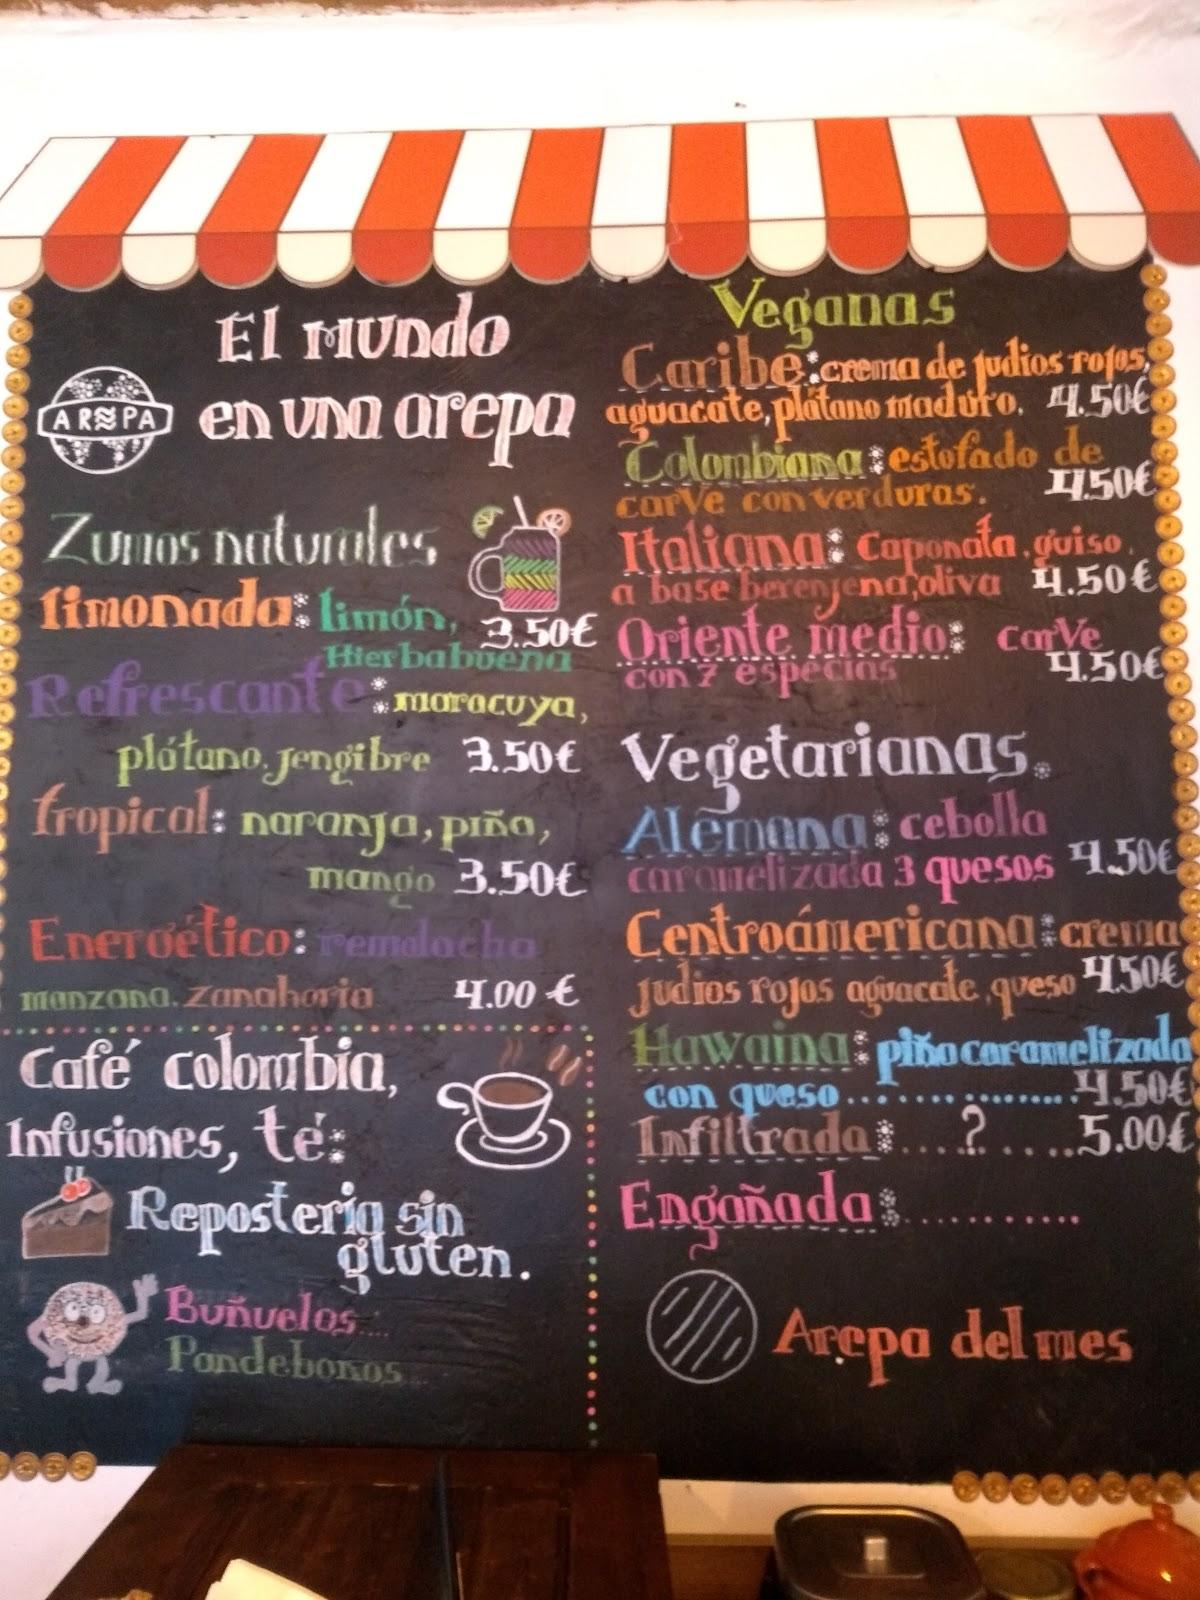 El mundo
en una arepa
AREPA
Zumos naturales
limonada: limón,
Hierbabuena 3.50€
Refrescante: maracuya,
plátano, jengibre 3.50€
tropical: naranja, piña,
mango 3.50€
Energético: remolacha
manzana, zanahoria 4.00 €
Café colombia,
Infusiones, té:
Reposteria sin
gluten.
Buñuelos....
Pandebonos...
Veganas
Caribe: crema de judios rojos,
aguacate, plátano maduro. 4.50€
Colombiana: estofado de
carve con verduras. 4.50€
Italiana: Caponata, guiso,
a base berenjena, oliva 4.50€
Oriente medio: carve
con 7 especias 4.50€
Vegetarianas.
Alemana: cebolla
caramelizada 3 quesos 4.50€
Centroámericana: crema
judios rojos aguacate, queso 4.50€
Hawaina: piña caramelizada
con queso.................4.50€
Infiltrada:....?......5.00€
Engañada:..........
Arepa del mes